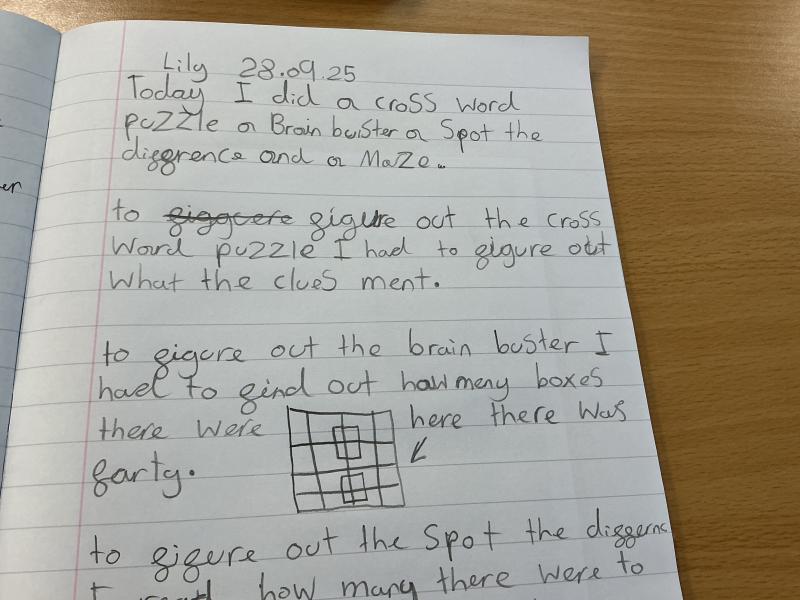 er
Lily 28.09.25
Today I did a cross word
puzzle a Brain buister a Spot the
diggrence and a Maze..
to gigguere gigure out the cross
Word puzzle I had to gigure out
What the clues ment.
to gigure out the brain buster I
had to gind out how meny boxes
there were here there was
garty.
to gigure out the Spot the diggernc
how many there were to